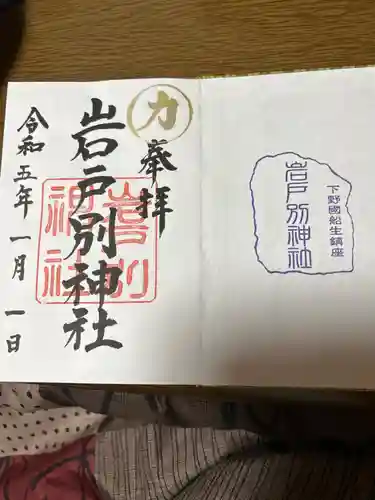 力
奉拝
岩戸別神社
岩戸別
神社
令和五年一月一日
下野國船生鎮座
岩戸別神社